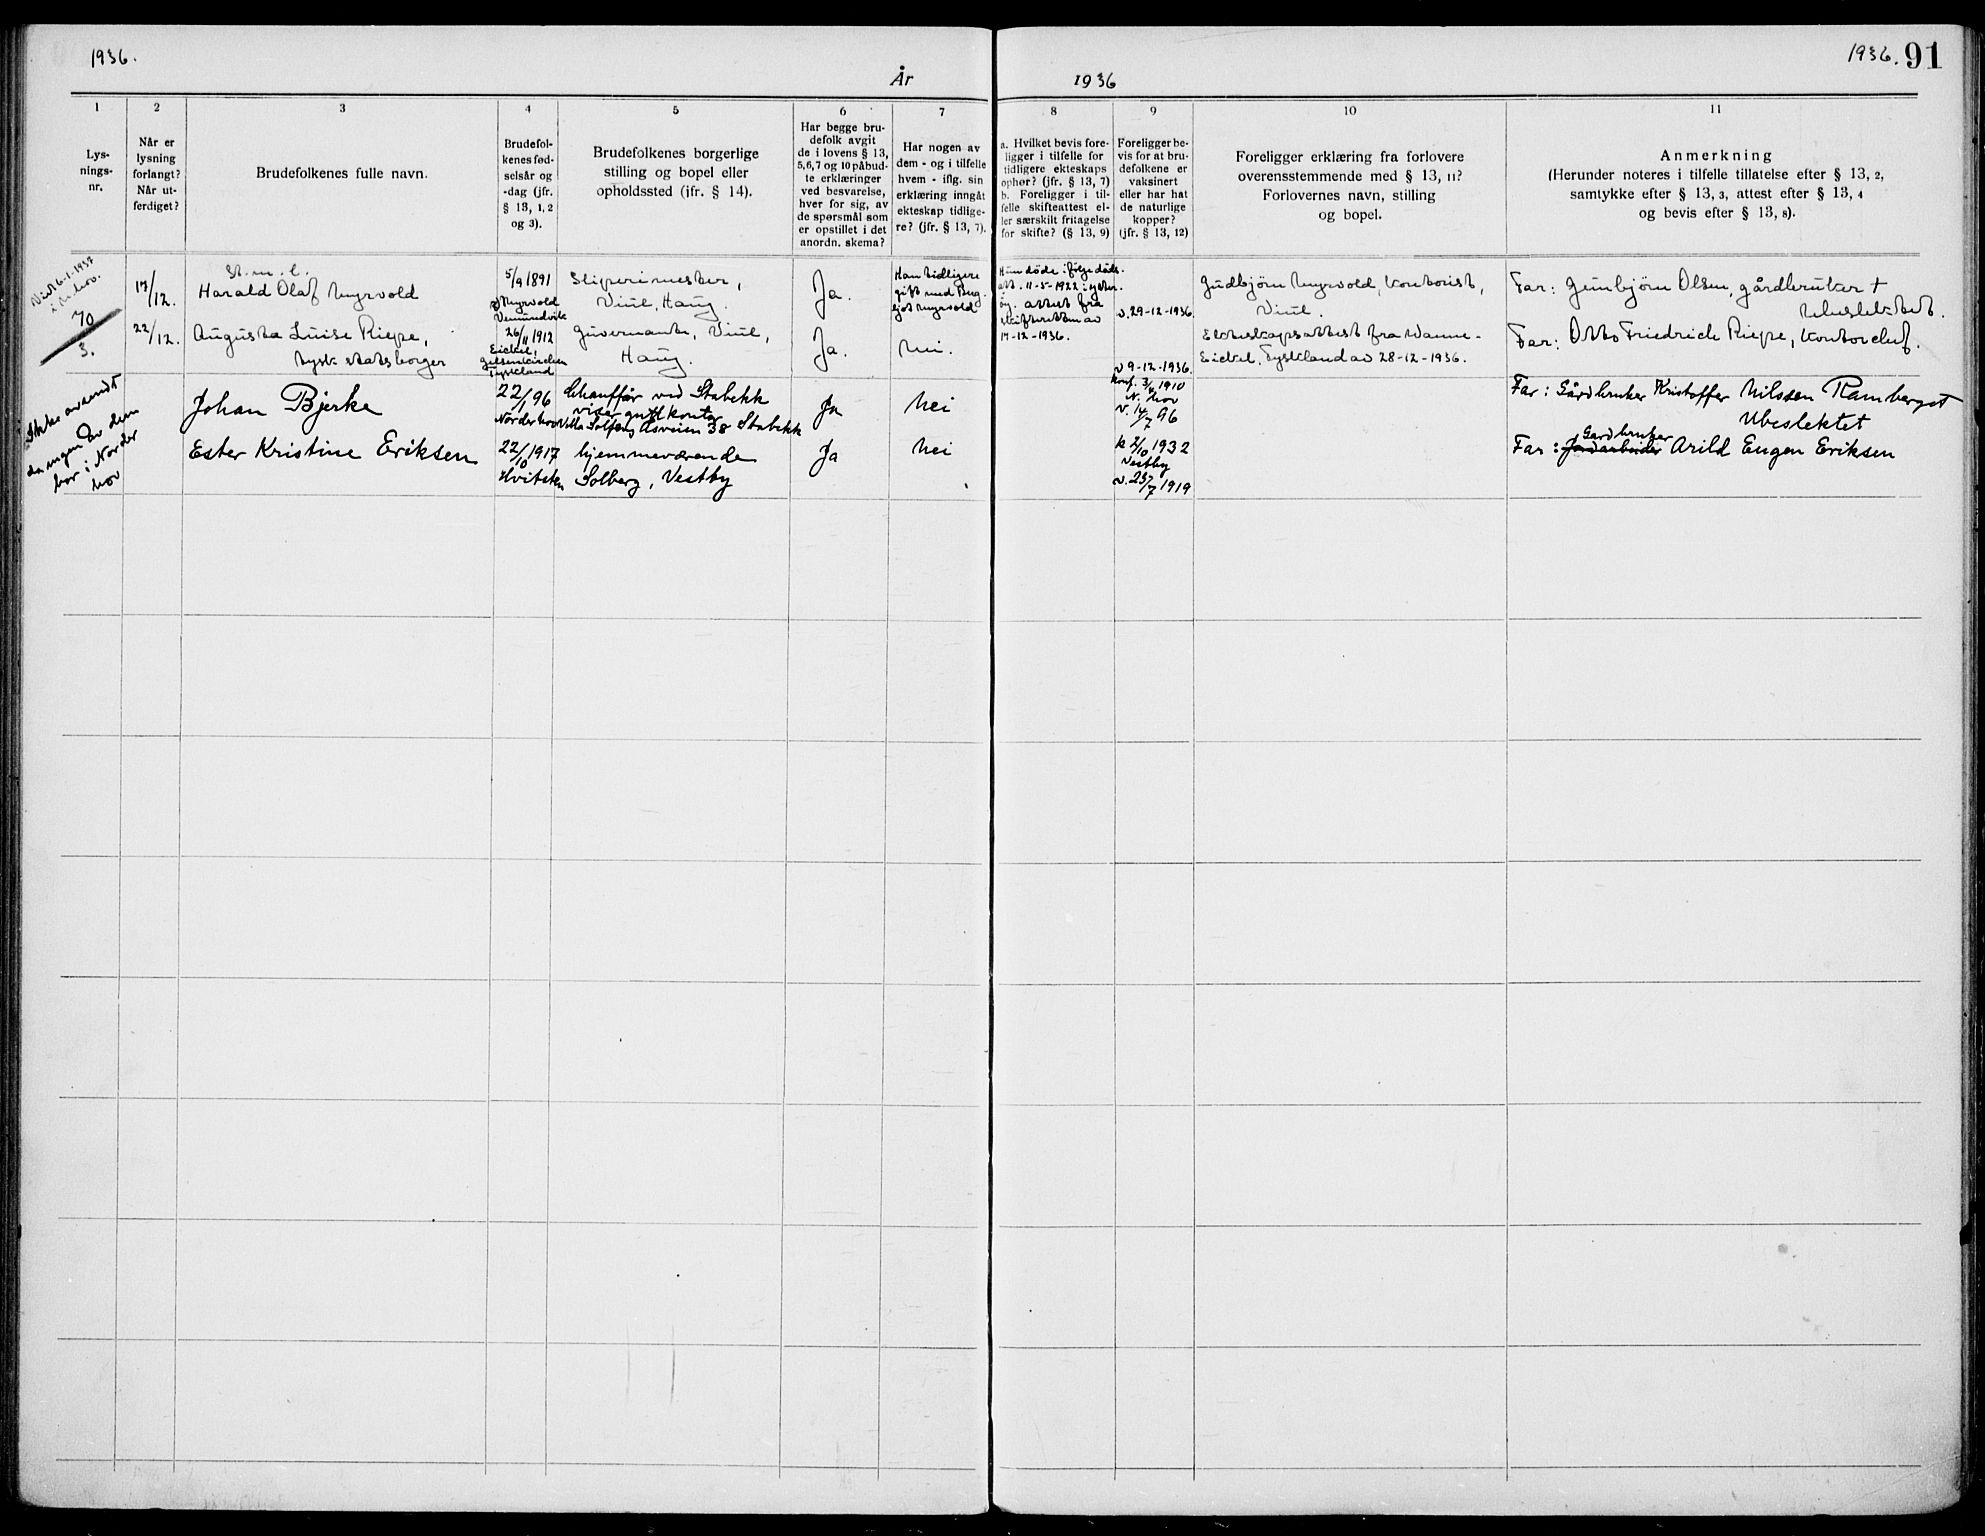 1936.
År 1936
1936. 91
1
Lys-
nings-
nr.
2
Når er
lysning
forlangt?
Når ut-
ferdiget?
3
Brudefolkenes fulle navn.
4
Brudefol-
kenes fød-
selsår og
-dag (jfr.
§ 13, 1, 2
og 3).
5
Brudefolkenes borgerlige
stilling og bopel eller
opholdssted (jfr. § 14).
6
Har begge bru-
defolk avgit
de i lovens § 13,
5,6,7 og 10 påbud-
te erklæringer
ved besvarelse,
hver for sig, av
de spørsmål som
er opstillet i det
anordn. skema?
7
Har nogen av
dem - og i tilfelle
hvem - iflg. sin
erklæring inngåt
ekteskap tidlige-
re? (jfr. § 13, 7).
8
a. Hvilket bevis fore-
ligger i tilfelle for
tidligere ekteskaps
ophør? (jfr. § 13, 7)
b. Foreligger i til-
felle skifteattest el-
ler særskilt fritagelse
for skifte? (§ 13, 9)
9
Foreligger be-
vis for at bru-
defolkene er
vaksinert
eller har hat
de naturlige
kopper?
(jfr. § 13, 12)
10
Foreligger erklæring fra forlovere
overensstemmende med § 13, 11?
Forlovernes navn, stilling
og bopel.
11
Anmerkning
(Herunder noteres i tilfelle tillatelse efter § 13, 2,
samtykke efter § 13, 3, attest efter § 13, 4
og bevis efter § 13, 8).
Viet 6-1-1937
70
3.
17/12.
22/12.
St. m. l.
Harald Olaf Myrvold
Augusta Luise Riepe,
tysk statsborger
5/9 1891
Myrvold
26/11 1912
Eickel,
Gelsenkirchen
Tyskland
Sliperimester,
Viul, Haug.
Guvernante, Viul,
Haug.
Ja.
Ja.
Han tidligere
gift med
Myrvold
Nei.
Hun døde ifølge døds-
att. 11-5-1922
attest fra
skifteretten av
17-12-1936.
v. 29-12-1936.
v 9-12-1936.
Gudbjørn Myrvold, kontorist,
Viul.
Ekteskapsattest fra Wanne-
Eickel, Tyskland av 28-12-1936.
Far: Gunbjørn Olsen, gårdbruker +
Ubeslektet.
Far: Otto Friedrich Riepe, kontorchef.
Ikke avsendt
da ingen av dem
bor i Norder
hov
Johan Bjerke
Ester Kristine Eriksen
22/1 96
Norderhov
22/10 1917
Hvitsten
Chauffør ved Stabekk
Villa Solberg Åsveien 38 Stabekk
hjemmeværende
Solberg, Vestby
Ja
Ja
Nei
Nei
konf. 3/4 1910
N. hov
v. 14/7 96
k 2/10 1932
Vestby
v. 23/7 1919
Far: Gårdbruker Kristoffer Nilssen Ramberget
Ubeslektet
Far: Gardbruker Jordarbeider Arild Eugen Eriksen